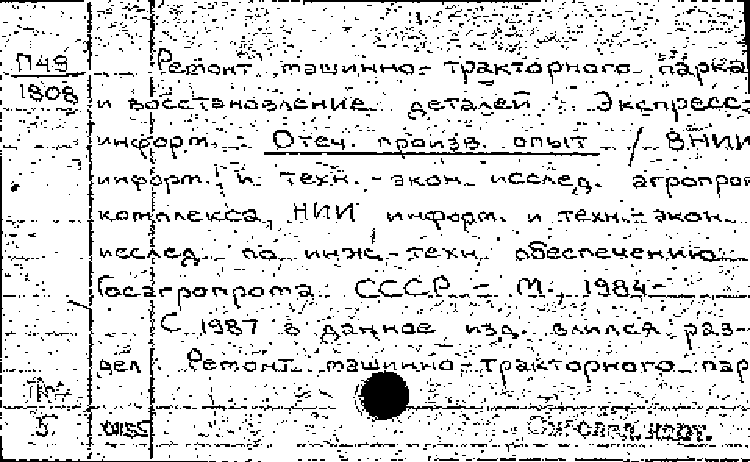 П48
1808
Ремонт машинно-тракторного парка
и восстановление деталей : Экспресс-
информ. : Отеч. произв. опыт / ВНИИ
информ. и техн.-экон. исслед. агропром
комплекса, НИИ информ. и техн.-экон.
исслед. по инж.-техн. обеспечению
Госагропрома СССР - М., 1984-
С 1987 в данное изд. влился раз-
дел Ремонт машинно-тракторного пар
5